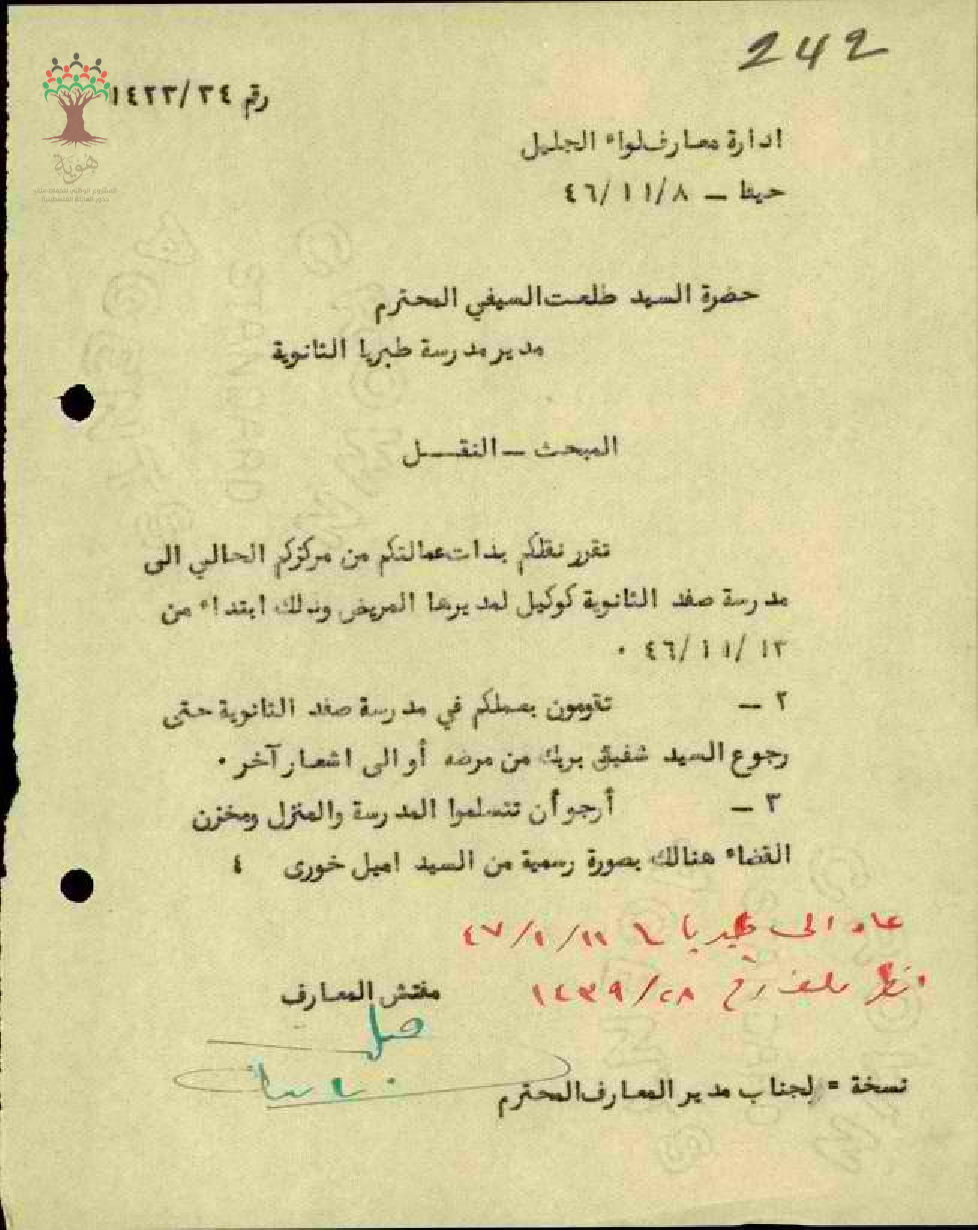 242
رقم ١٤٢٣/٣٤
هوية
ادارة معارف لواء الجليل
حيفا – ٤٦/١١/٨
حضرة السيد طلعت السيفي المحترم
مدير مدرسة طبريا الثانوية
المبحث – النقــل
تقرر نقلكم بذات عمالتكم من مركزكم الحالي الى
مدرسة صفد الثانوية كوكيل لمديرها المريض وذلك ابتداء من
٤٦/١١/١٣ .
٢ – تقومون بعملكم في مدرسة صفد الثانوية حتى
رجوع السيد شفيق بريك من مرضه أو الى اشعار آخر .
٣ – أرجو أن تتسلموا المدرسة والمنزل ومخزن
القضاء هنالك بصورة رسمية من السيد اميل خورى ٤
عاد الى طبريا
انظر ملف رقم ١٤٣٩/٢٨
مفتش المعارف
نسخة = لجناب مدير المعارف المحترم